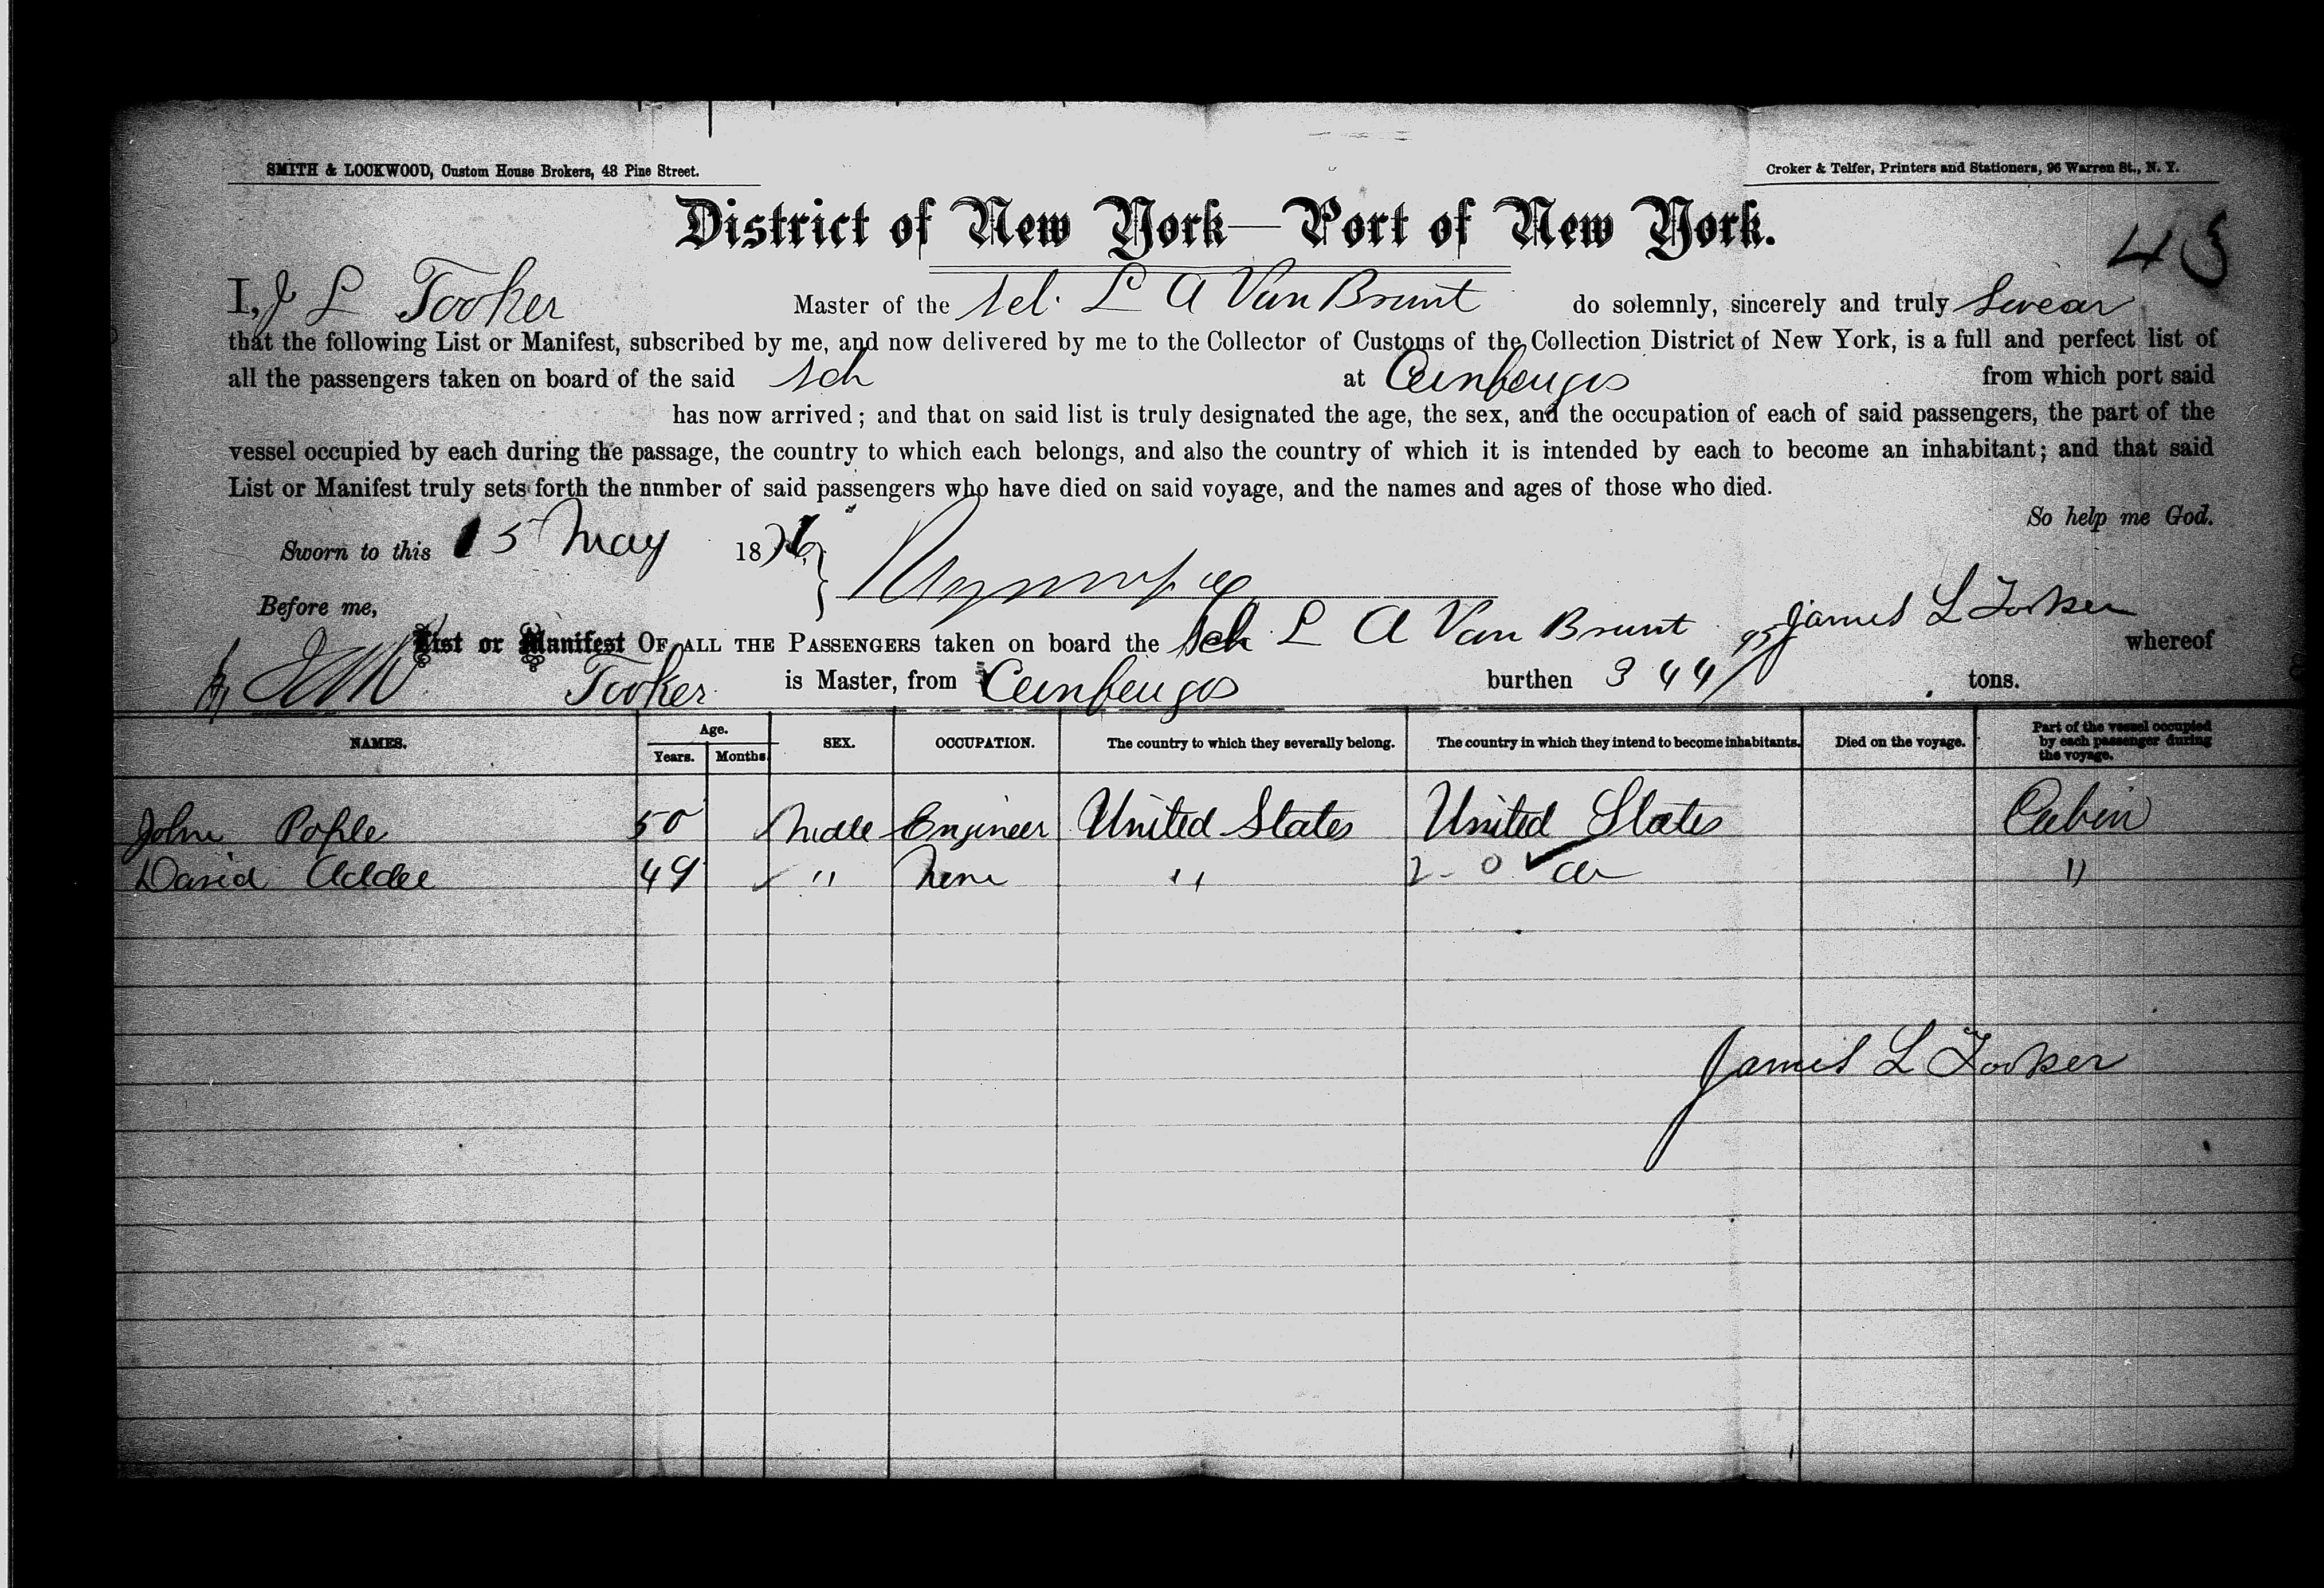 SMITH & LOCKWOOD, Custom House Brokers, 48 Pine Street.
Croker & Telfer, Printers and Stationers, 96 Warren St., N. Y.
District of New York—Port of New York.
I, J L Tooker Master of the Sch. L A Van Brunt do solemnly, sincerely and truly Swear
that the following List or Manifest, subscribed by me, and now delivered by me to the Collector of Customs of the Collection District of New York, is a full and perfect list of
all the passengers taken on board of the said Sch at Cienfuegos from which port said
has now arrived; and that on said list is truly designated the age, the sex, and the occupation of each of said passengers, the part of the
vessel occupied by each during the passage, the country to which each belongs, and also the country of which it is intended by each to become an inhabitant; and that said
List or Manifest truly sets forth the number of said passengers who have died on said voyage, and the names and ages of those who died.
So help me God.
Sworn to this 15 May 1876
Before me,
James L Tooker
List or Manifest OF ALL THE PASSENGERS taken on board the Sch L A Van Brunt whereof
Tooker is Master, from Cienfuegos burthen 344 tons.
NAMES. Age. Years. Months. SEX. OCCUPATION. The country to which they severally belong. The country in which they intend to become inhabitants. Died on the voyage. Part of the vessel occupied by each passenger during the voyage.
John Pople 50 Male Engineer United States United States Cabin
David Addee 49 " None " "
James L Tooker